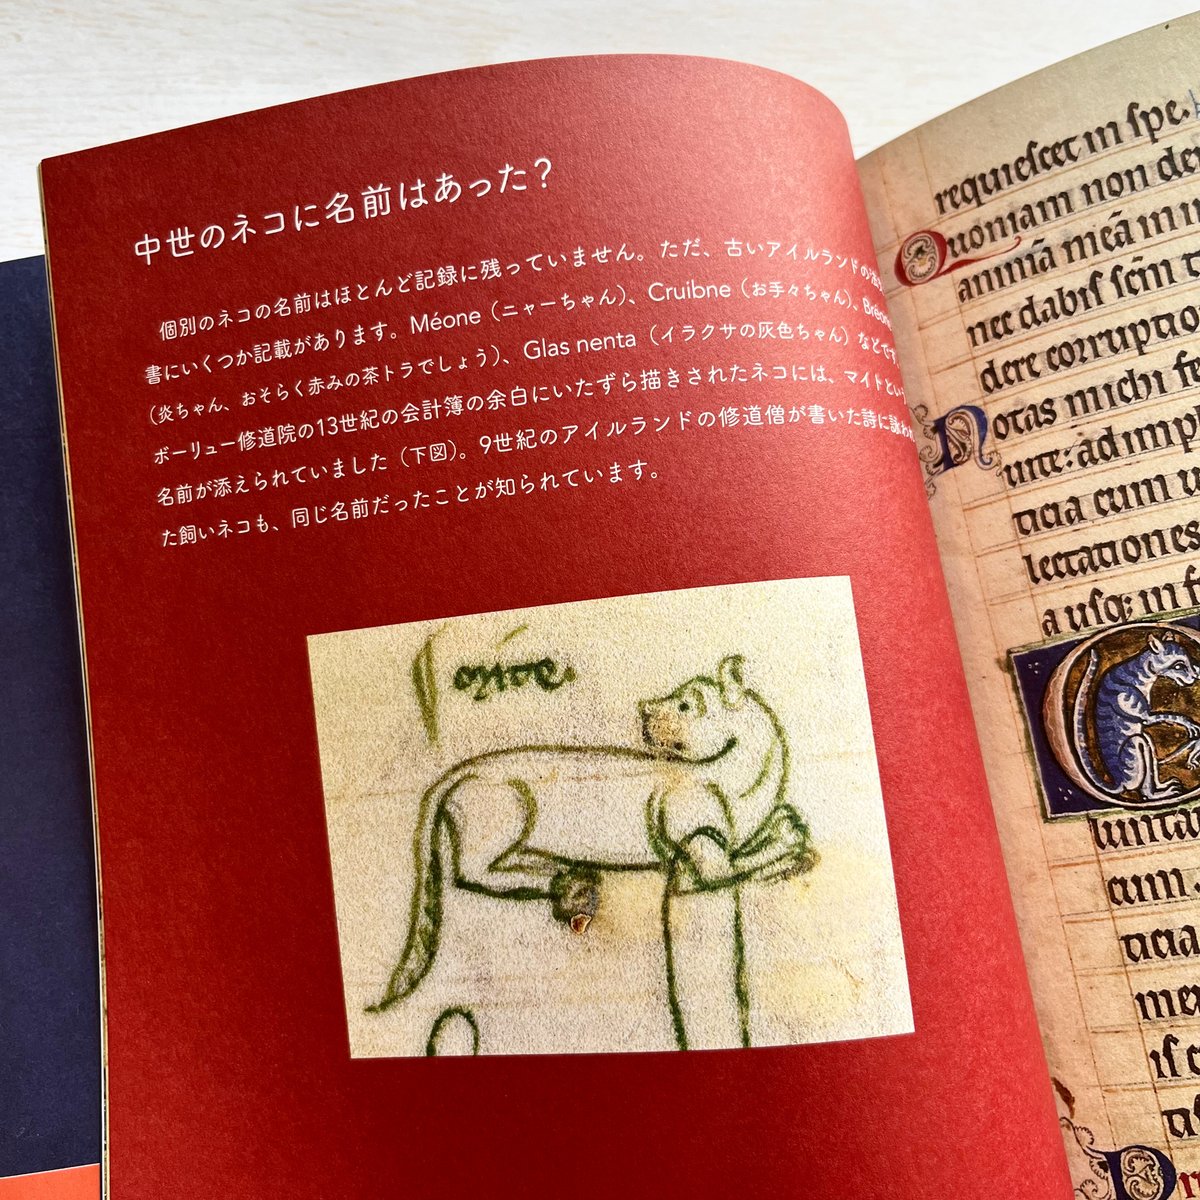 中世のネコに名前はあった?
個別のネコの名前はほとんど記録に残っていません。ただ、古いアイルランドの法
書にいくつか記載があります。Méone(ニャーちゃん)、Cruibne(お手々ちゃん)、Breone
(炎ちゃん、おそらく赤みの茶トラでしょう)、Glas nenta(イラクサの灰色ちゃん)などです。
ボーリュー修道院の13世紀の会計簿の余白にいたずら描きされたネコには、マイトという
名前が添えられていました(下図)。9世紀のアイルランドの修道僧が書いた詩に詠われ
た飼いネコも、同じ名前だったことが知られています。
mite.
requiescet in spe.
Quoniam non
animā meā in
nec dabis scm̄
dere corruptio
Notas michi
unte: ad imp
ticia cum
lectationes
a usq: in
cum
ticia